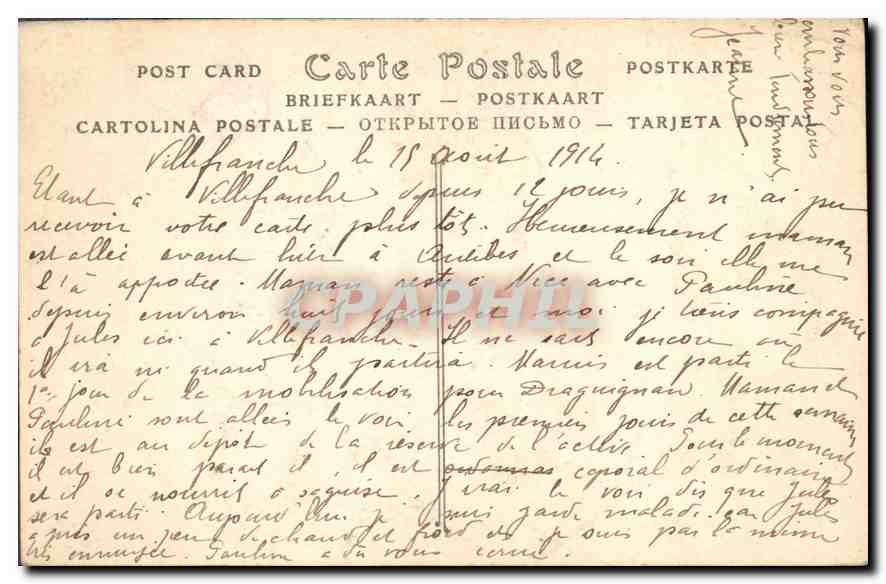 POST CARD Carte Postale POSTKARTE
BRIEFKAART — POSTKAART
CARTOLINA POSTALE — ОТКРЫТОЕ ПИСЬМО — TARJETA POSTAL
Villefranche le 15 Août 1914.
Etant à Villefranche depuis 12 jours, je n'ai pu
recevoir votre carte plus tôt. Heureusement maman
est allée avant hier à Antibes et le soir elle me
l'à apportée. Maman reste à Nice avec Pauline
depuis environ huit jours et moi je tiens compagnie
à Jules ici à Villefranche. Il ne sait encore où
il ira ni quand il partira. Marius est parti le
1er jour de la mobilisation pour Draguignan. Maman et
Pauline sont allées le voir les premiers jours de cette semaine
il est au dépôt de la réserve de l'active. Pour le moment
il est bien parait il, il est caporal d'ordinaire
et il se nourrit à sa guise. J'irai le voir dès que Jules
sera parti. Aujourd'hui je suis garde malade car Jules
a pris un peu de chaud et froid et je suis pas la même
très ennuyée. Pauline a dû vous écrire.
Nous vous
embrassons tous
bien tendrement
Jeanne
CPAPHIL